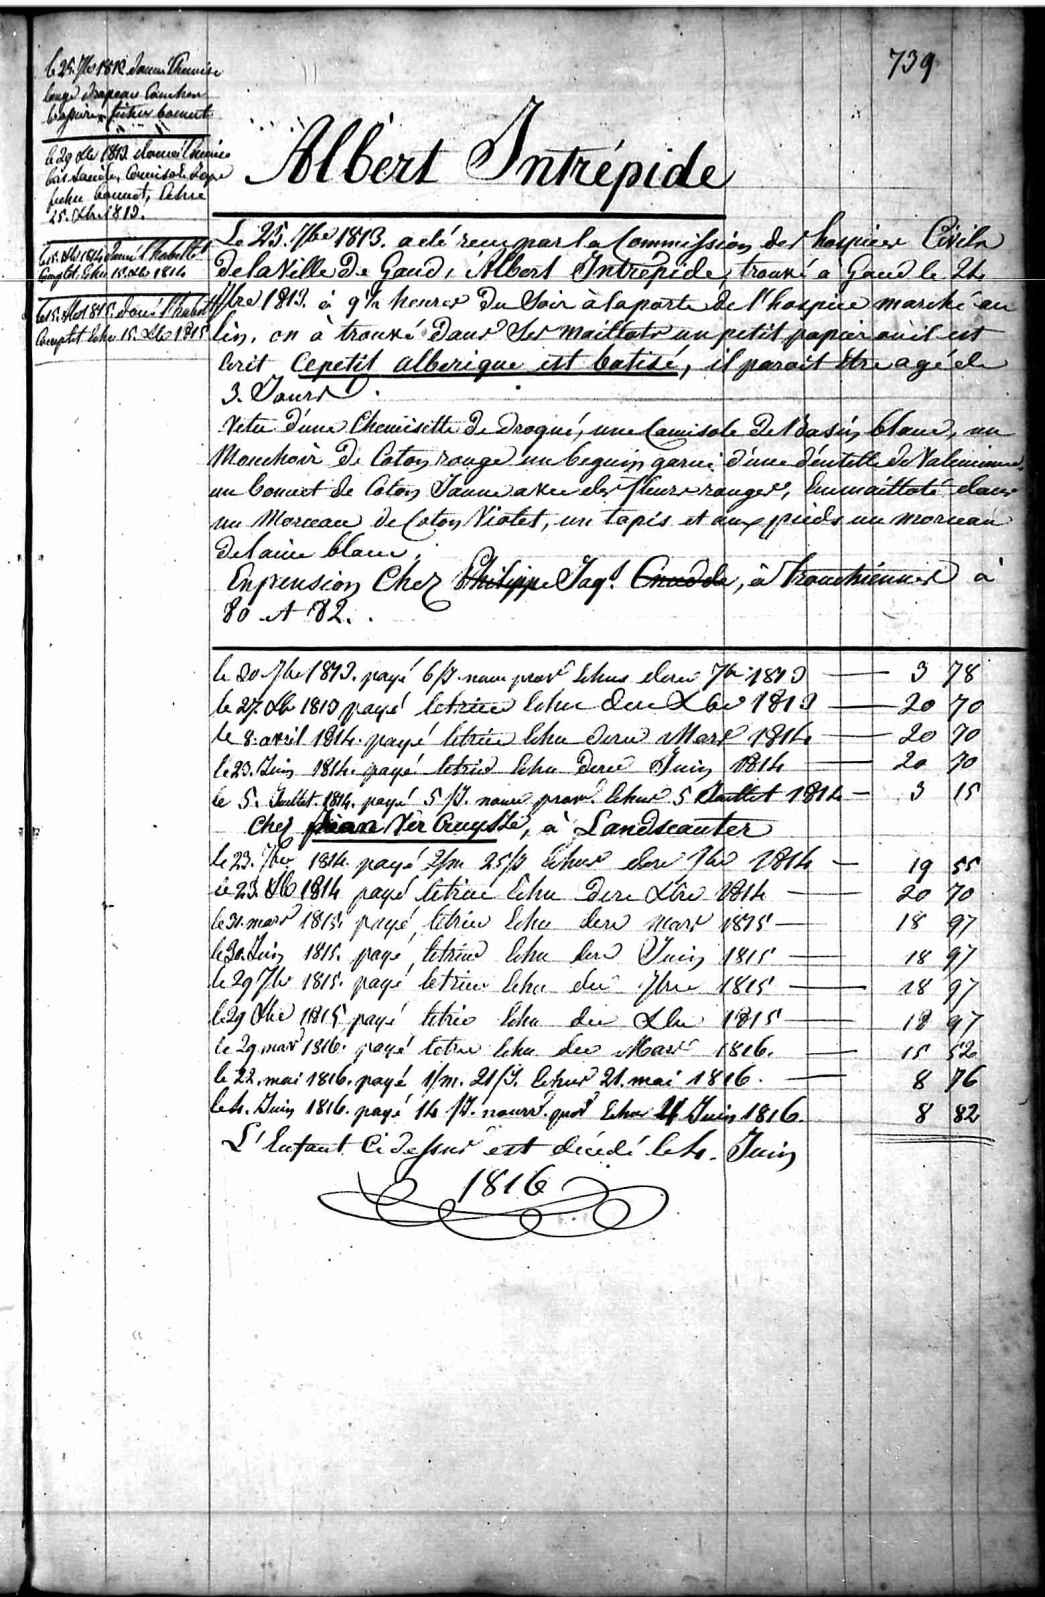 739
le 25. 7bre 1813 donné Chemise
lange drapeau Couchon
fichu bonnet
le 29 Xbre 1813 donné Chemise
bas Camisole
fichu bonnet, Echu
25. Xbre 1813.
le 15. Xbre 1814 donné l'habillt
Complet Echu 15. Xbre 1814
le 15. 1815. donné l'habillt
Complet Echu 15. Xbre 1815
Albert Intrépide
Le 25. 7bre 1813. a été reçu par la Commission des hospices Civils
de la Ville de Gand, Albert Intrépide, trouvé à Gand le 24
7bre 1813. à 9 1/2 heures du Soir à la porte de l'hospice marché au
lin, on à trouvé dans Ses maillots un petit papier où il est
Ecrit Cepetit alberique est batisé, il parait être agé de
3. Jours
Vetu d'une Chemisette de drogué, une Camisole de basin blanc, un
Mouchoir de Coton rouge un beguin garni d'une déntelle de Valencienne,
un bonnet de Coton Jaune avec des fleurs rouges, Emmaillotté dans
un Morceau de Coton Violet, un tapis et aux pieds un morceau
de laine blanc.
En pension Chez Philippe Jaqs. Cnudde, à tronchiennes à
80 et 82.
le 30 7bre 1813. payé 6/J. nourr prov Echus dern 7bre 1813 3 78
le 27. Xbre 1813 payé letrim Echu dern Xbre 1813 20 70
le 8. avril 1814. payé letrim Echu dern Mars 1814 20 70
le 23. Juin 1814. payé letrim Echu dern Juin 1814 20 70
le 5. Juillet. 1814. payé 5/J. nourr prov. Echus 5 Juillet 1814 3 15
Chez Jean Ver Cruysse, à Landscauter
le 23. 7bre 1814. payé 2/m 25/J Echus dern 7bre 1814 19 55
le 23. Xbre 1814 payé letrim Echu dern Xbre 1814 20 70
le 31. mars 1815. payé letrim Echu dern mars 1815 18 97
le 30. Juin 1815. payé letrim Echu dern Juin 1815 18 97
le 29 7bre 1815. payé letrim Echu der 7bre 1815 18 97
le 29 Xbre 1815 payé letrim Echu der Xbre 1815 18 97
le 29 mars 1816. payé letrim Echu der Mars 1816. 15 52
le 22. mai 1816. payé 1/m. 21/J. Echus 21. mai 1816. 8 76
le 4. Juin 1816. payé 14/J. nourr. Echu 4 Juin 1816. 8 82
L'Enfant Cidessus est décédé le 4. Juin
1816